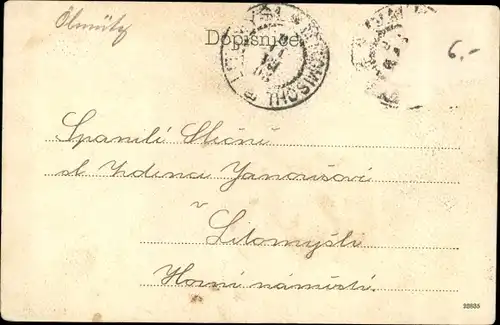 Olmütz
Dopisnice
6.-
LEITOMISCHL
Spanilé Slečně
sl. Zdenca Janoušová
v
Litomyšli
Horní náměstí.
93835